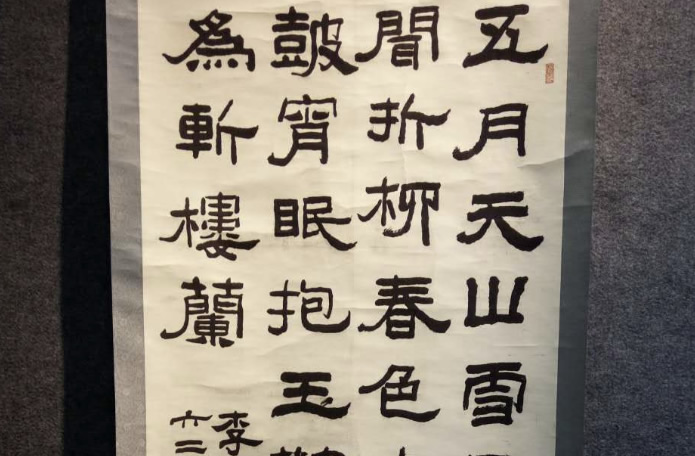 五月天山雪
聞折柳春色
鼓宵眠抱玉
為斬樓蘭
李
六二